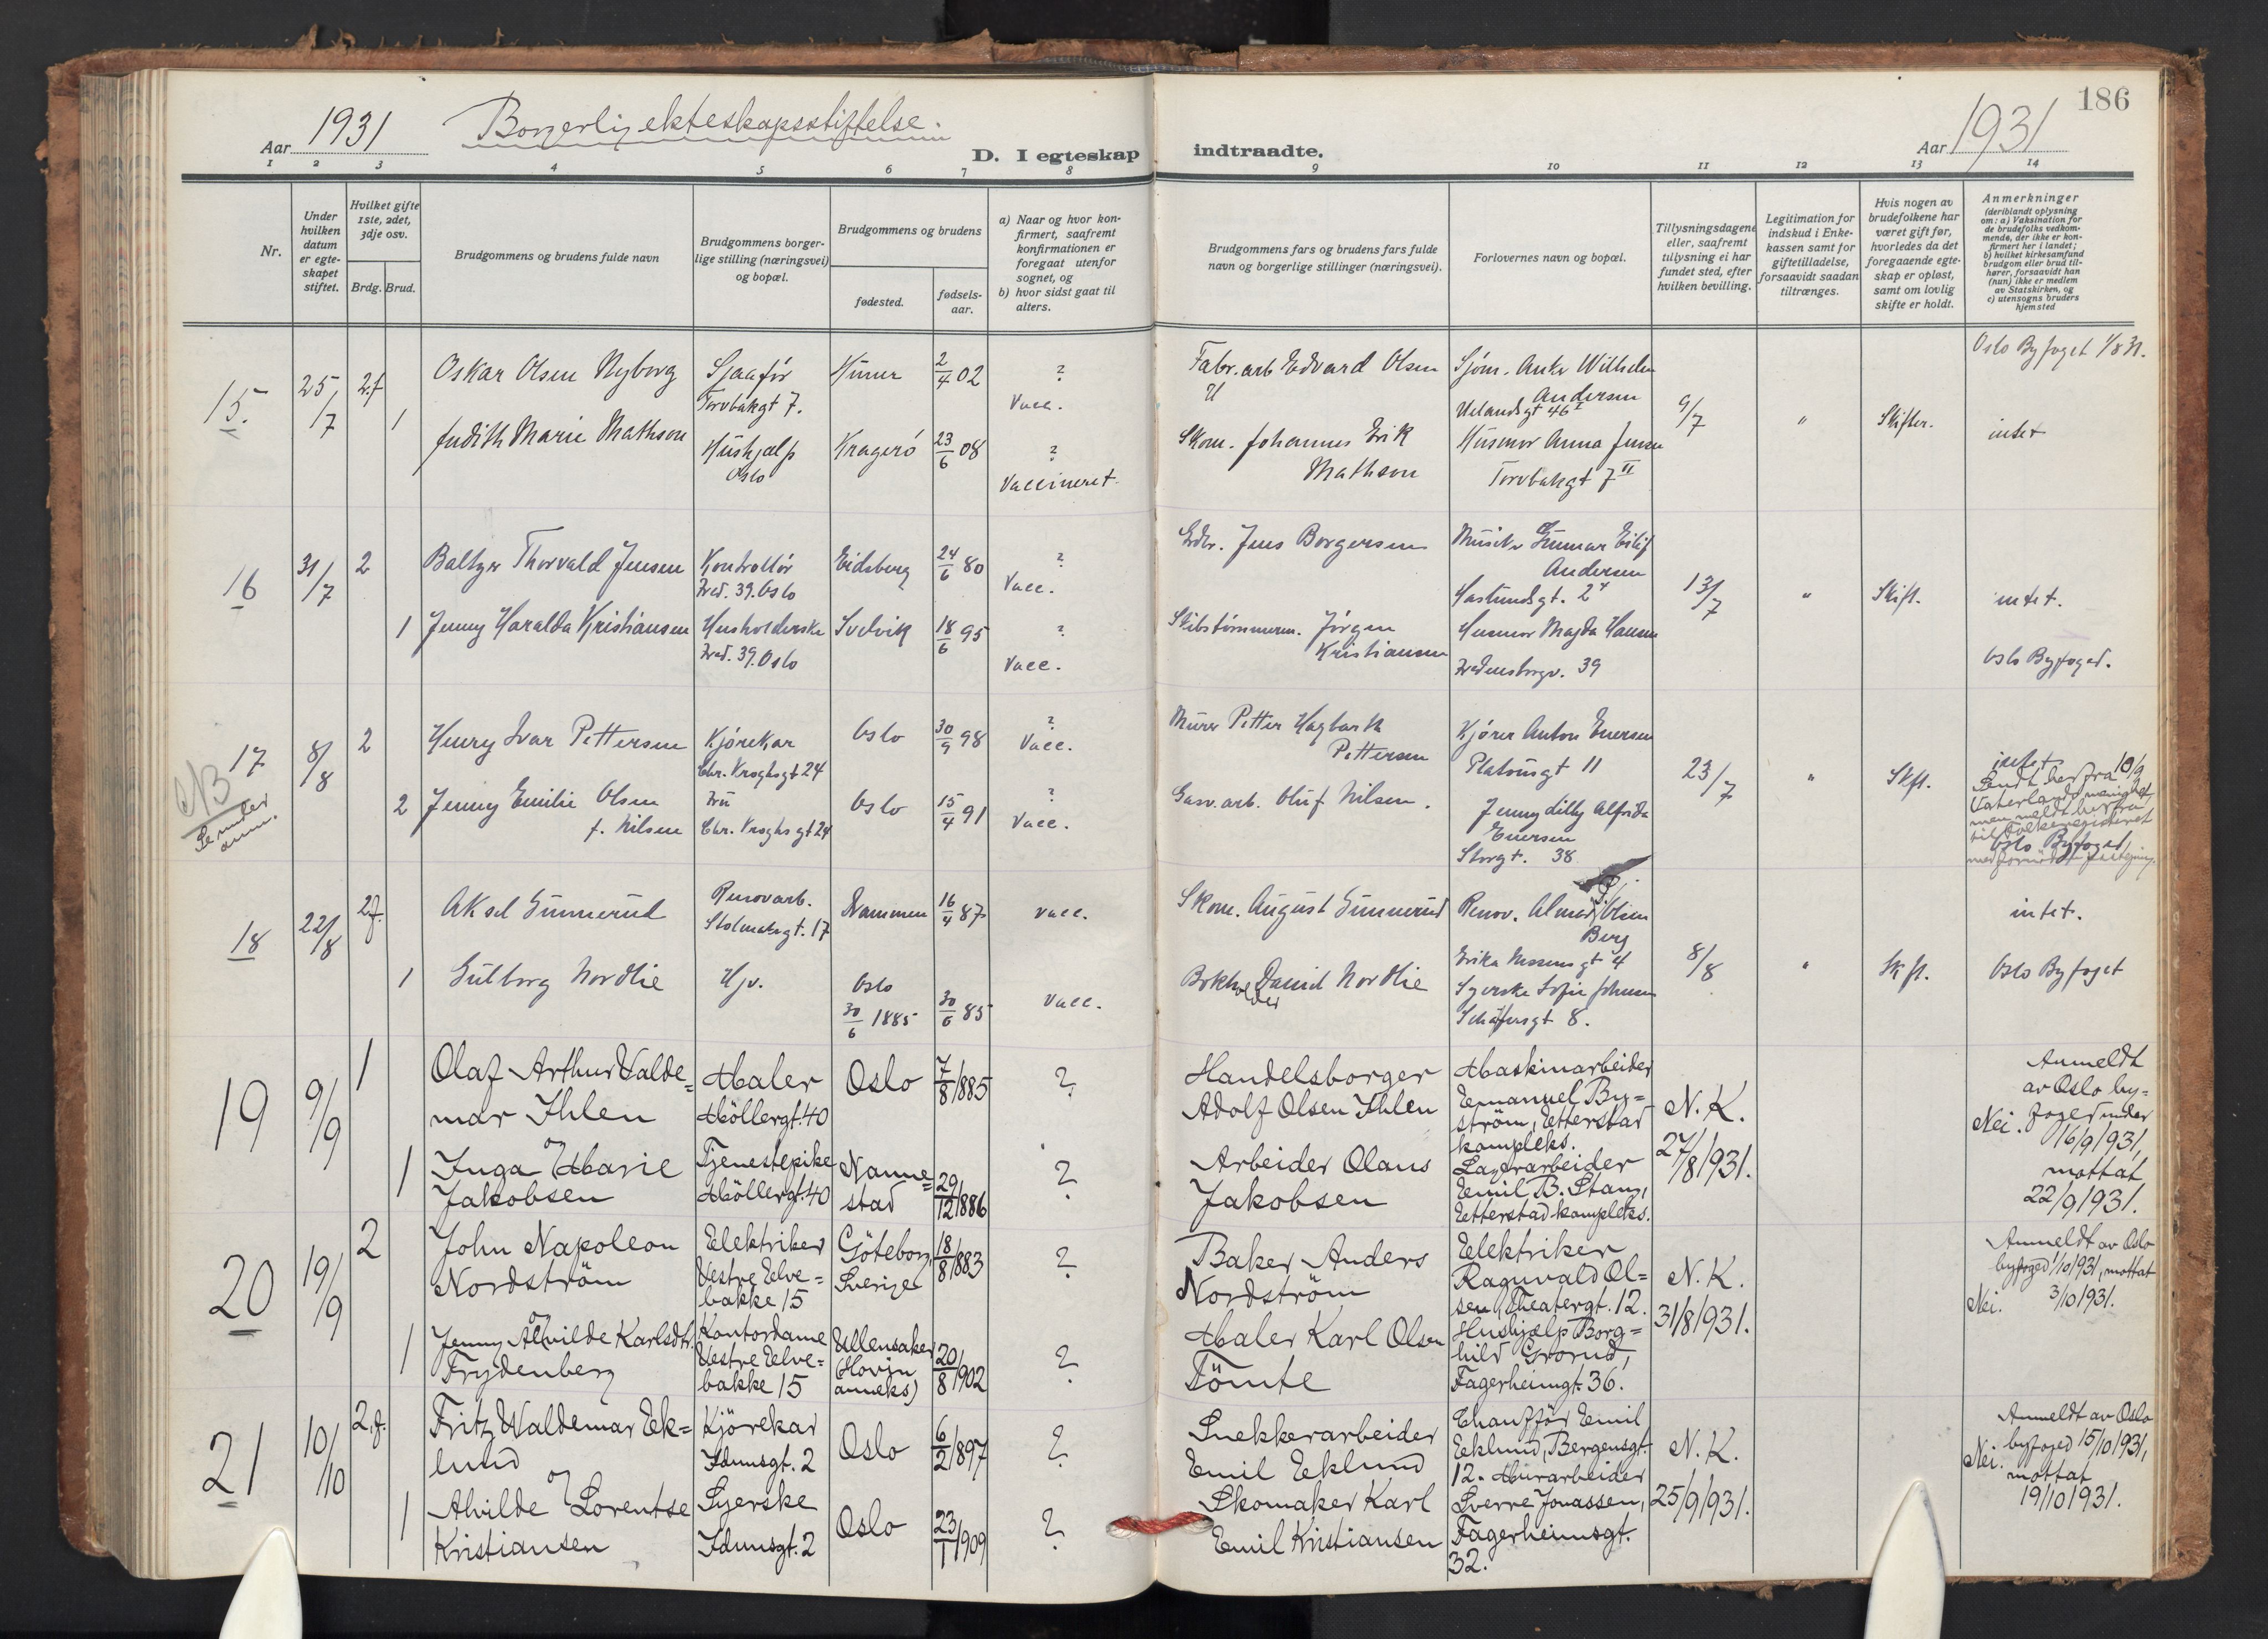 186
Aar 1931
Borgerlig ekteskapsstiftelse.
D. I egteskap indtraadte.
Aar 1931
1 2 3 4 5 6 7 8 9 10 11 12 13 14
Nr.
Under hvilken datum er egteskapet stiftet.
Hvilket gifte 1ste, 2det, 3dje osv.
Brdg. Brud.
Brudgommens og brudens fulde navn
Brudgommens borgerlige stilling (næringsvei) og bopæl.
Brudgommens og brudens
fødested.
fødselsaar.
a) Naar og hvor konfirmert, saafremt konfirmationen er foregaat utenfor sognet, og
b) hvor sidst gaat til alters.
Brudgommens fars og brudens fars fulde navn og borgerlige stillinger (næringsvei).
Forlovernes navn og bopæl.
Tillysningsdagene eller, saafremt tullysning ei har fundet sted, efter hvilken bevilling.
Legitimation for indskud i Enkekassen samt for giftetilladelse, forsaavidt saadan tiltrænges.
Hvis nogen av brudefolkene har været gift før, hvorledes da det foregaaende egteskap er opløst, samt om lovlig skifte er holdt.
Anmerkninger
(deriblandt oplysning om: a) Vaksination for de brudefolks vedkommende, der ikke er konfirmert her i landet;
b) hvilket kirkesamfund brudgom eller brud tilhører, forsaavidt han (hun) ikke er medlem av Statskirken, og
c) utensogns bruders hjemsted
15. 25/7 2.f Oskar Olsen Nyborg
Sjaafør
Torvbakgt 7.
Hurum 2/4 02 ? Vacc.
Fabr. arb Edvard Olsen
Sjøm. Anker Wilhelm
Andersen
Uelandsgt 46 I
9/7 " Skifter. intet
Oslo Byfoget 1/8 31.
1 Judith Marie Mathson
Hushjælp
Oslo
Kragerö 23/6 08 ? Vaccineret.
Skom. Johannes Erik
Mathson
Husmor Anna Jensen
Torvbakgt 7 II
16 31/7 2 Baltzer Thorvald Jensen
Kontrollör
Fred. 39. Oslo
Eidsberg 24/6 80 ? Vacc.
Grdbr. Jens Borgersen
Musiker Gunnar Eilif
Andersen
13/7 " Skift. intet.
1 Jenny Haralda Kristiansen
Husholderske
Fred. 39. Oslo
Svelvik 18/6 95 ? Vacc.
Skibstömmerm. Jörgen
Kristiansen
Husmor Magda Hansen
Fredensborgv. 39
Oslo Byfoged.
17 8/8 2 Henry Ivar Pettersen
Kjørekar
Chr. Kroghsgt 24
Oslo 30/9 98 ? Vacc.
Murer Petter Hagbart
Pettersen
Kjører Anton Enersen
Platousgt 11
23/7 " Skft. intet
NB
Se under anm.
2 Jenny Emilie Olsen
f. Nilsen
Fru
Chr. Kroghsgt 24
Oslo 15/4 91 ? Vacc.
Gasv. arb. Oluf Nilsen.
Jenny Lilly Alfrida
Enersen
Storgt. 38
Sendt herfra 10/9
Vaterlands menighet,
men meldt herfra
til Folkeregisteret
Oslo Byfoged,
18 22/8 2.f. Aksel Gunnerud
Renovarb.
Stolmakergt. 17
Drammen 16/4 87 Vacc.
Skom. August Gunnerud
Renov. Olsen
Berg
Erika Nissensgt 4
8/8 " Skft. intet.
1 Gulborg Nordlie
Hjv.
Oslo
30/6 1885 30/6 85 Vacc.
Bokholder David Nordlie
Syerske Sofie Johnsen
Schäffersgt 8.
Oslo Byfoget
19 9/9 1 Olaf Arthur Valde=
mar Ihlen
og
Maler
Möllergt. 40
Oslo 7/8 1885 ?
Handelsborger
Adolf Olsen Ihlen
Maskinarbeider
Emanuel By=
ström, Etterstad
kompleks.
N. K.
27/8 1931.
Nei.
Anmeldt
av Oslo by=
foged under
16/9 1931,
mottat
22/9 1931.
1 Inga Marie
Jakobsen
Tjenestepike
Möllergt. 40
Nanne=
stad 29/12 1886 ?
Arbeider Olaus
Jakobsen
Lagerarbeider
Emil B. Stang,
Etterstad kompleks.
20 19/9 2 John Napoleon
Nordström
og
Elektriker
Vestre Elve=
bakke 15
Göteborg,
Sverige 18/8 1883 ?
Baker Anders
Nordström
Elektriker
Ragnvald Ol=
sen, Theatergt. 12.
N. K.
31/8 1931.
Nei.
Anmeldt av Oslo
byfoged 1/10 1931, mottat
3/10 1931.
1 Jenny Alvilde Karlsdtr.
Frydenberg
Kontordame
Vestre Elve=
bakke 15
Ullensaker
(Hovin
anneks) 20/8 1902 ?
Maler Karl Olsen
Tömte
Hushjælp Borg=
hild Grorud,
Fagerheimgt. 36.
21 10/10 2.f. Fritz Valdemar Ek=
lund
og
Kjörekar
Idunsgt. 2
Oslo 6/2 1897 ?
Snekkerarbeider
Emil Eklund
Chauffør Emil
Eklund, Bergensgt.
12. Murarbeider
N. K.
25/9 1931.
Nei.
Anmeldt av Oslo
byfoged 15/10 1931,
mottat
19/10 1931.
1 Alvilde Lorentse
Kristiansen
Syerske
Idunsgt. 2
Oslo 23/1 1909 ?
Skomaker Karl
Emil Kristiansen
Sverre Jonassen,
Fagerheimsgt.
32.